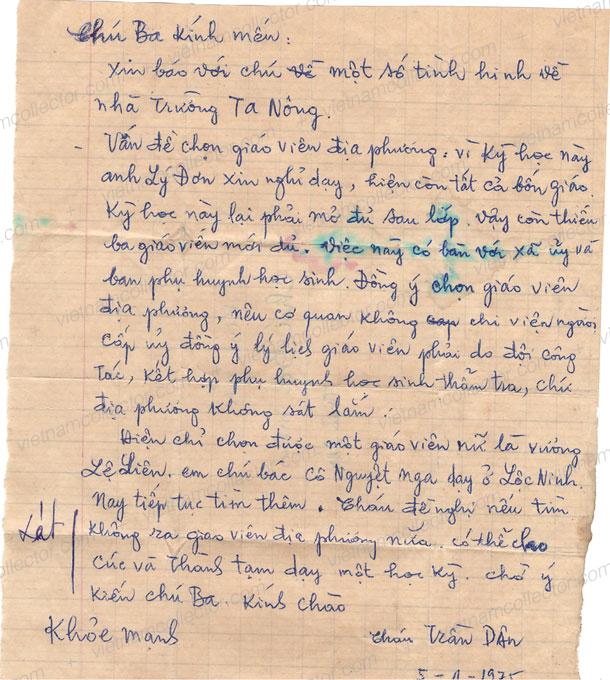 Chú Ba Kính mến:
Xin báo với chú về một số tình hình về
nhà Trường Ta Nông.
- Vấn đề chọn giáo viên địa phương: vì Kỳ học này
anh Lý Đơn xin nghỉ dạy, hiện còn tất cả bốn giáo.
Kỳ học này lại phải mở đủ sau lớp. Vậy còn thiếu
ba giáo viên mới đủ. Việc này có bàn với xã ủy và
ban phụ huynh học sinh. Đồng ý chọn giáo viên
địa phương, nếu cơ quan không chi viện người
cấp ủy đồng ý lý lịch giáo viên phải do đội công
Tác, Kết hợp phụ huynh học sinh thẩm tra, chứ
địa phương không sát lắm.
Hiện chỉ chọn được một giáo viên nữ là vương
Lệ Liên. em chú bác Cô Nguyệt nga dạy ở Lộc Ninh.
Nay tiếp tục tìm thêm. Cháu đề nghị nếu tìm
Không ra giáo viên địa phương nữa. có thể cho
Cúc và Thành tạm dạy một học Kỳ. chờ ý
Kiến chú Ba. Kính chào
Lát
Khỏe mạnh
Cháu Trần Dân
5-1-1975